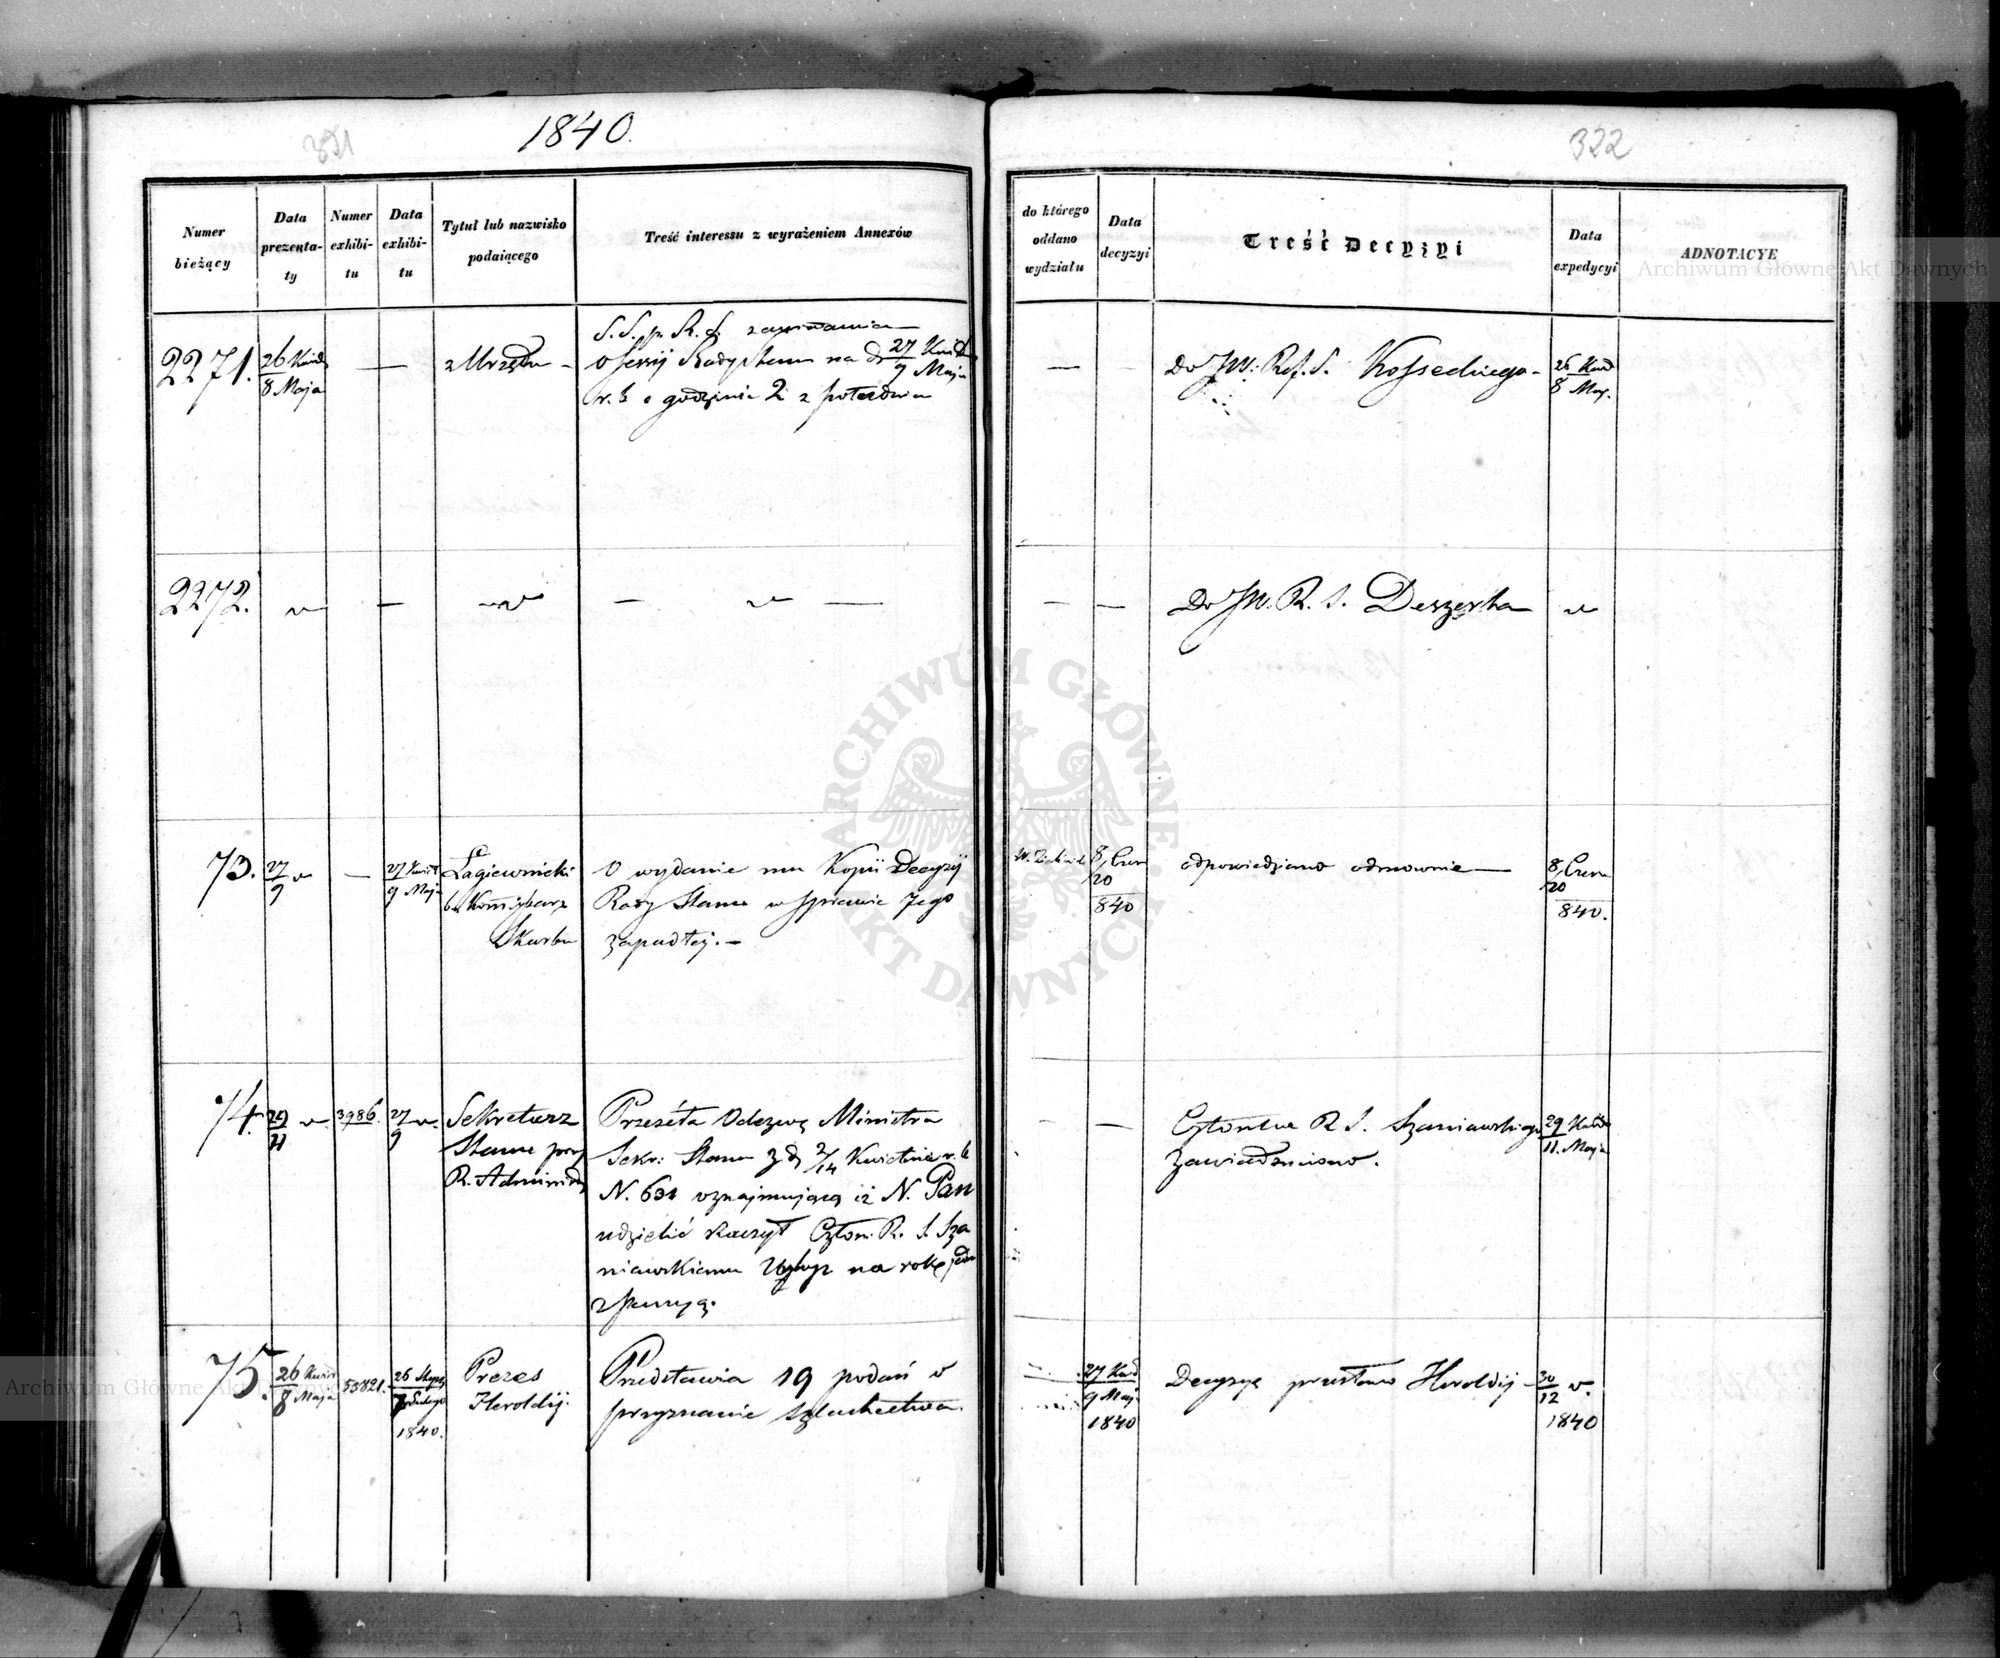 321
1840.
322
Numer bieżący
Data prezentaty
Numer exhibitu
Data exhibitu
Tytuł lub nazwisko podaiącego
Treść interessu z wyrażeniem Annexów
do którego oddano wydziału
Data decyzyi
Treść Decyzyi
Data expedycyi
ADNOTACYE
2271.
26 Kwiet
8 Maja
—
—
z Urzędu —
S. S. p. R. S. zawiadamia
o sessyi Rady Stanu na d. 27 Kwiet
9 Maja
r. b. o godzinie 2 z południa
—
Do JW. Ref. S. Kosseckiego —
26 Kwiet
8 Maj.
2272.
—
—
—
—
—
Do JW. R. S. Deszerta
73.
27
9
—
27 Kwiet
9 Maja
Łagiewnicki
b. Kommissarz
Skarbu
O wydanie mu Kopii Decyzyi
Rady Stanu w sprawie Jego
zapadłej. —
8/20 Czerw
840
odpowiedziano odmownie —
8/20 Czerw
840.
74.
29
11
3986.
27
9
Sekretarz
Stanu przy
R. Administr
Przesyła Odezwę Ministra
Sekr: Stanu z d. 2/14 Kwietnia r. b
N. 631 oznajmującą iż N. Pan
udzielić raczył Człon. R. S. Sza
niawskiemu Urlop na rok jeden
z pensyą.
—
—
Członka R. S. Szaniawskiego
zawiadomiono.
29 Kwiet
11. Maja
75.
26 Kwiet
8 Maja
53821.
26 Stycz
7 Lutego
1840.
Prezes
Heroldij.
Przedstawia 19 podań o
przyznanie szlachectwa.
27 Kwiet
9 Maj
1840
Decyzyę przesłano Heroldij —
30
12
1840
Archiwum Główne Akt Dawnych
Archiwum Główne Akt Dawnych
ARCHIWUM GŁÓWNE AKT DAWNYCH